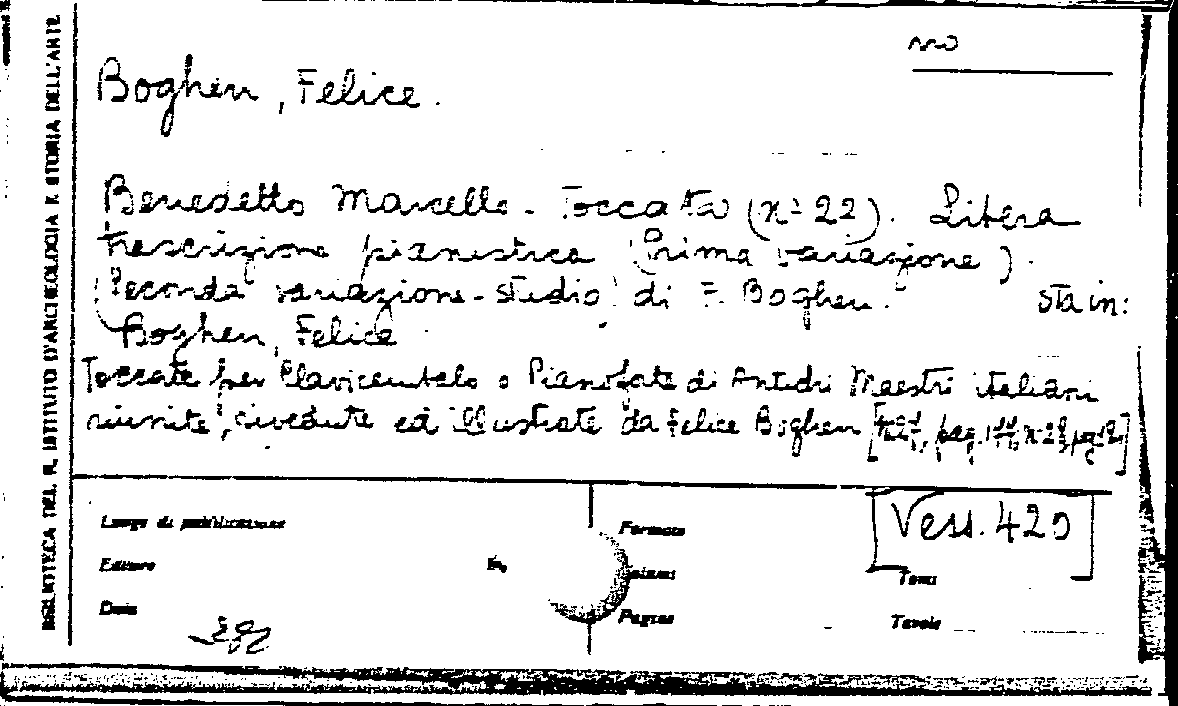 BIBLIOTECA DEL R. ISTITUTO D'ARCHEOLOGIA E STORIA DELL'ARTE
no
Boghen, Felice.
Benedetto Marcello - Toccata (nº 22). Libera
trascrizione pianistica (Prima variazione).
(Seconda variazione-studio) di F. Boghen. sta in:
Boghen, Felice
Toccate per Clavicembalo o Pianoforte di Antichi Maestri italiani
riunite, rivedute ed illustrate da Felice Boghen
[Vess. 420]
Luogo di pubblicazione
Formato
Editore
Volumi
Tomi
Data
Pagine
Tavole